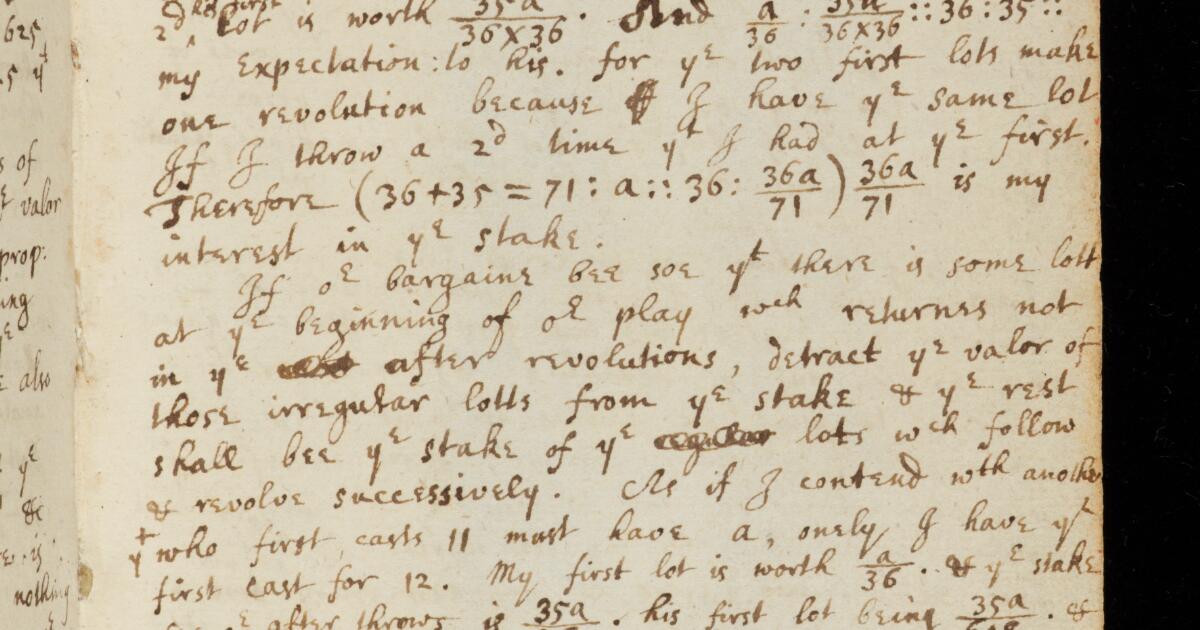 625
5 yt
s of
valor
prop:
ing
also
ye
&c
is
nothing
2d his first Lot is worth 35a/36×36. And a/36 : 35a/36×36 :: 36 : 35 ::
my Expectation : to his. for ye two first lots make
one revolution because I have ye same lot
If I throw a 2d time yt I had at ye first.
Therefore (36+35=71 : a :: 36 : 36a/71) 36a/71 is my
interest in ye stake.
If or bargaine bee soe yt there is some lott
at ye beginning of or play wch returnes not
in ye after revolutions, detract ye valor of
those irregular lotts from ye stake & ye rest
shall bee ye stake of ye lots wch follow
& revolve successively. As if I contend wth another
yt who first casts 11 must have a, onely I have ye
first cast for 12. My first lot is worth a/36. & ye stake
after throws is 35a . his first lot being 35a . &